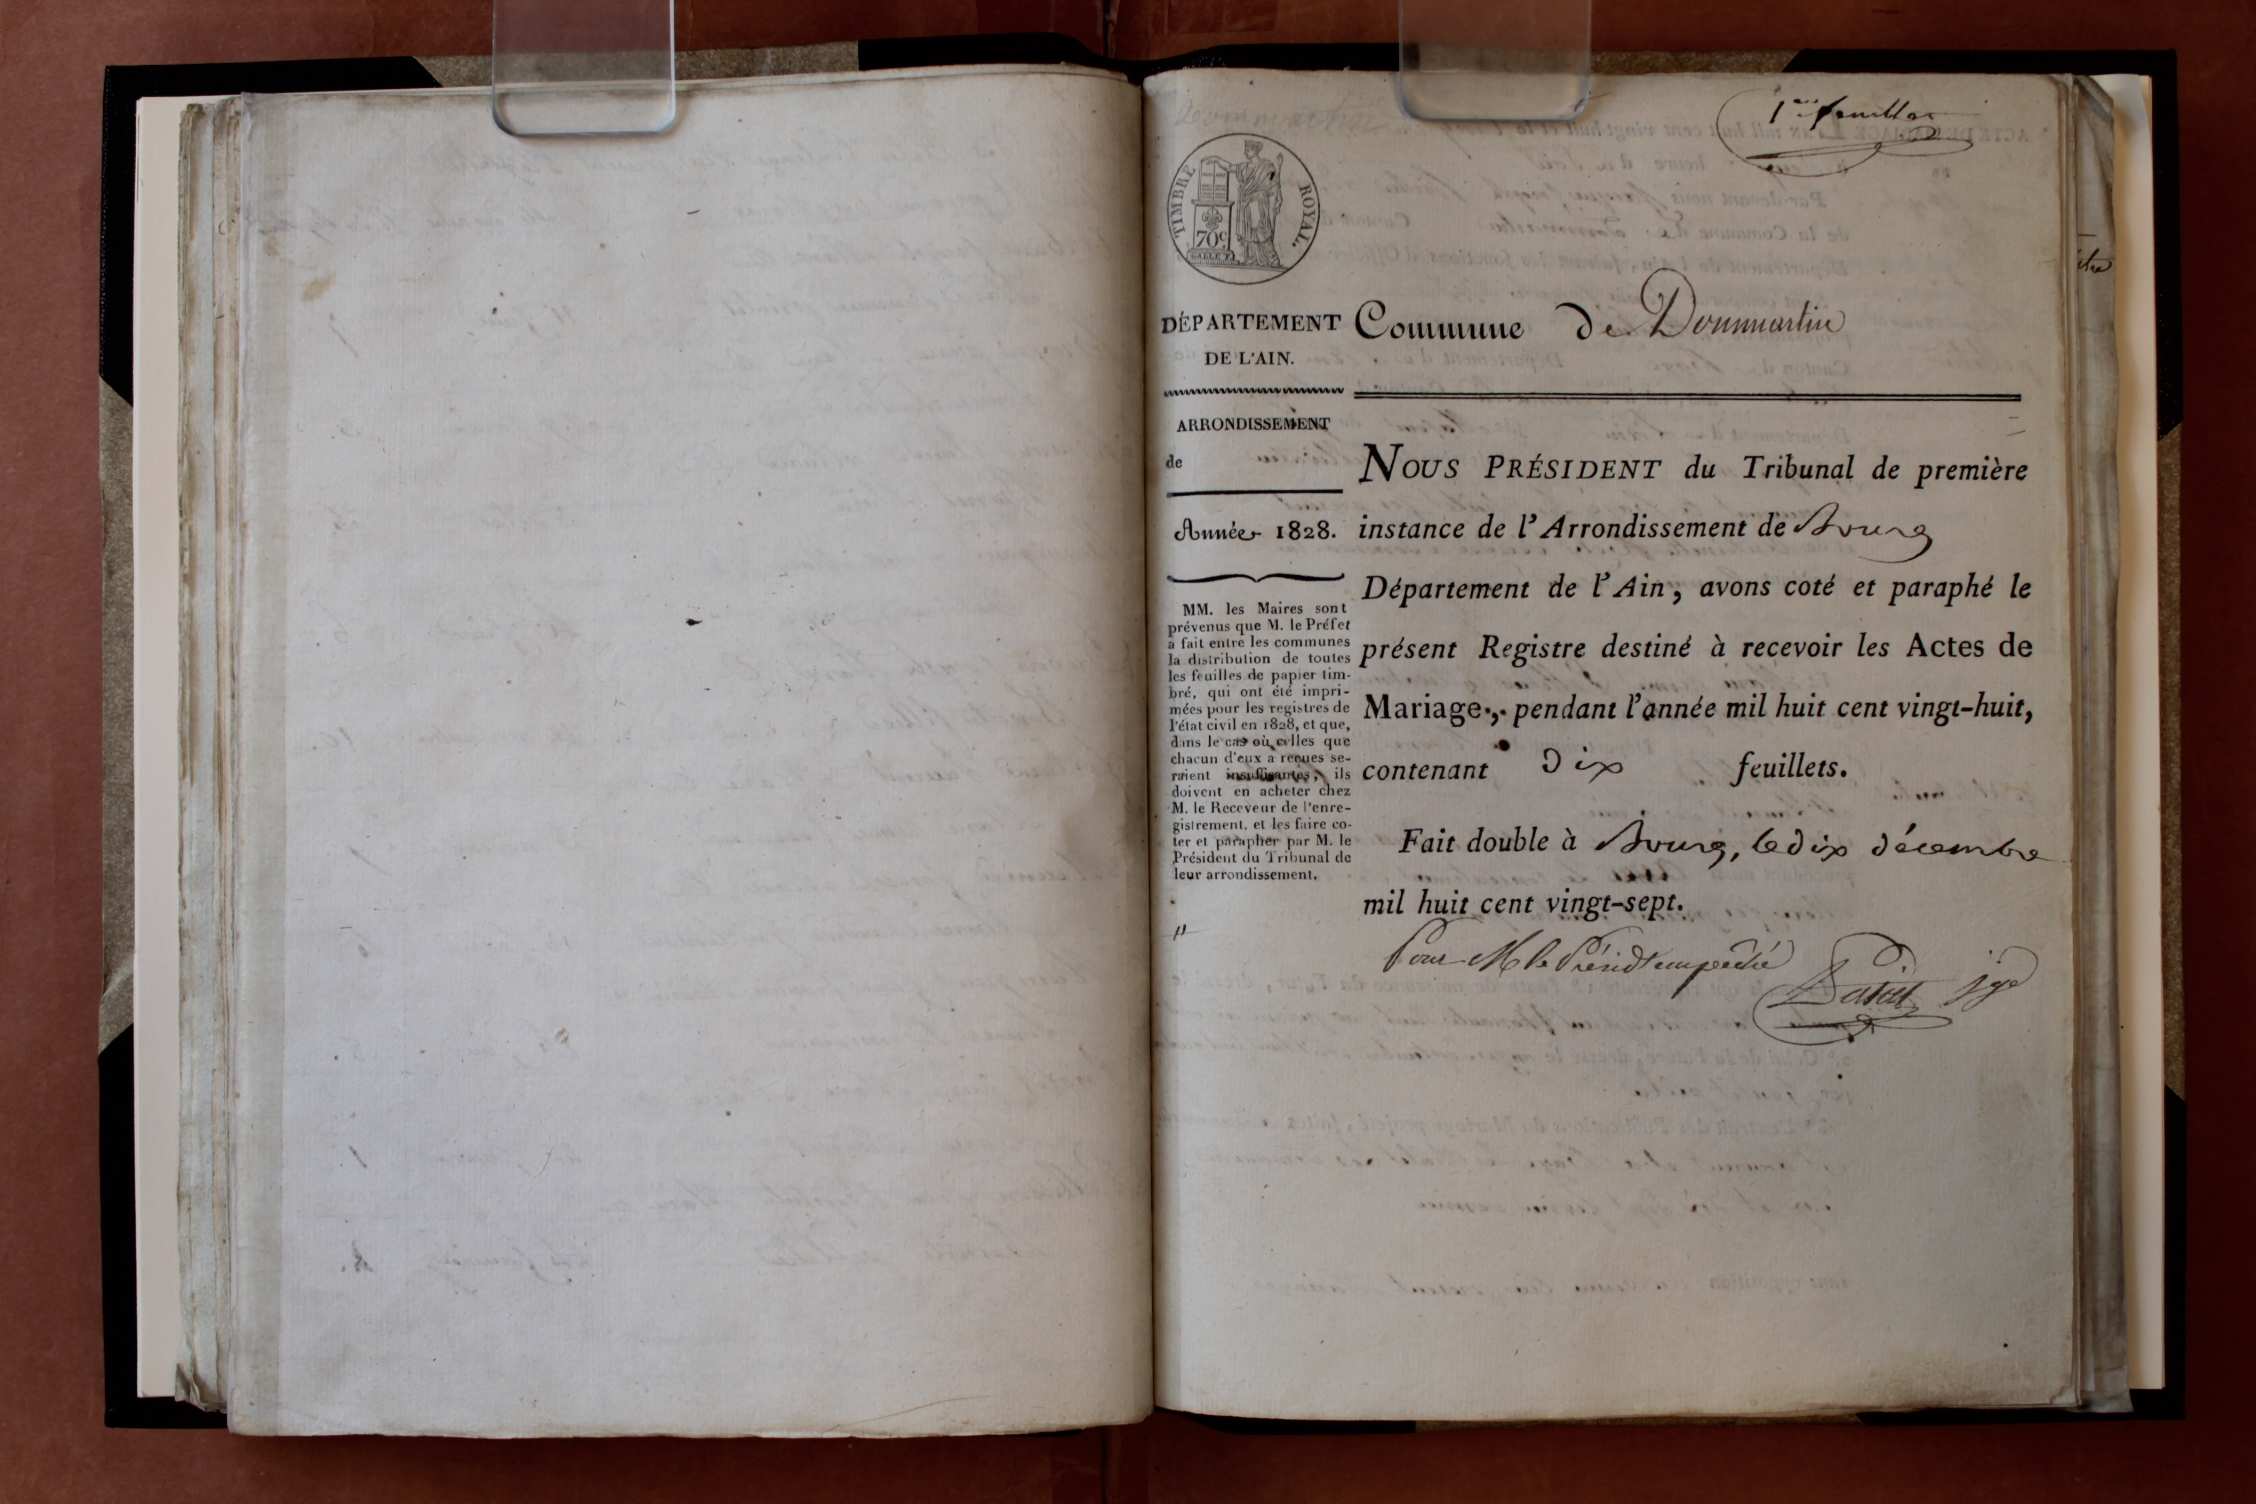 1er feuillet
TIMBRE ROYAL.
70c
DÉPARTEMENT
DE L'AIN.
Commune de Dommartin
ARRONDISSEMENT
de
Année 1828.
MM. les Maires sont
prévenus que M. le Préfet
a fait entre les communes
la distribution de toutes
les feuilles de papier tim-
bré, qui ont été impri-
mées pour les registres de
l'état civil en 1828, et que,
dans le cas où celles que
chacun d'eux a reçues se-
raient insuffisantes, ils
doivent en acheter chez
M. le Receveur de l'enre-
gistrement, et les faire co-
ter et parapher par M. le
Président du Tribunal de
leur arrondissement.
NOUS PRÉSIDENT du Tribunal de première
instance de l'Arrondissement de Bourg
Département de l'Ain, avons coté et paraphé le
présent Registre destiné à recevoir les Actes de
Mariage, pendant l'année mil huit cent vingt-huit,
contenant Dix feuillets.
Fait double à Bourg, le dix décembre
mil huit cent vingt-sept.
Pour M le Présidt empeché
jge